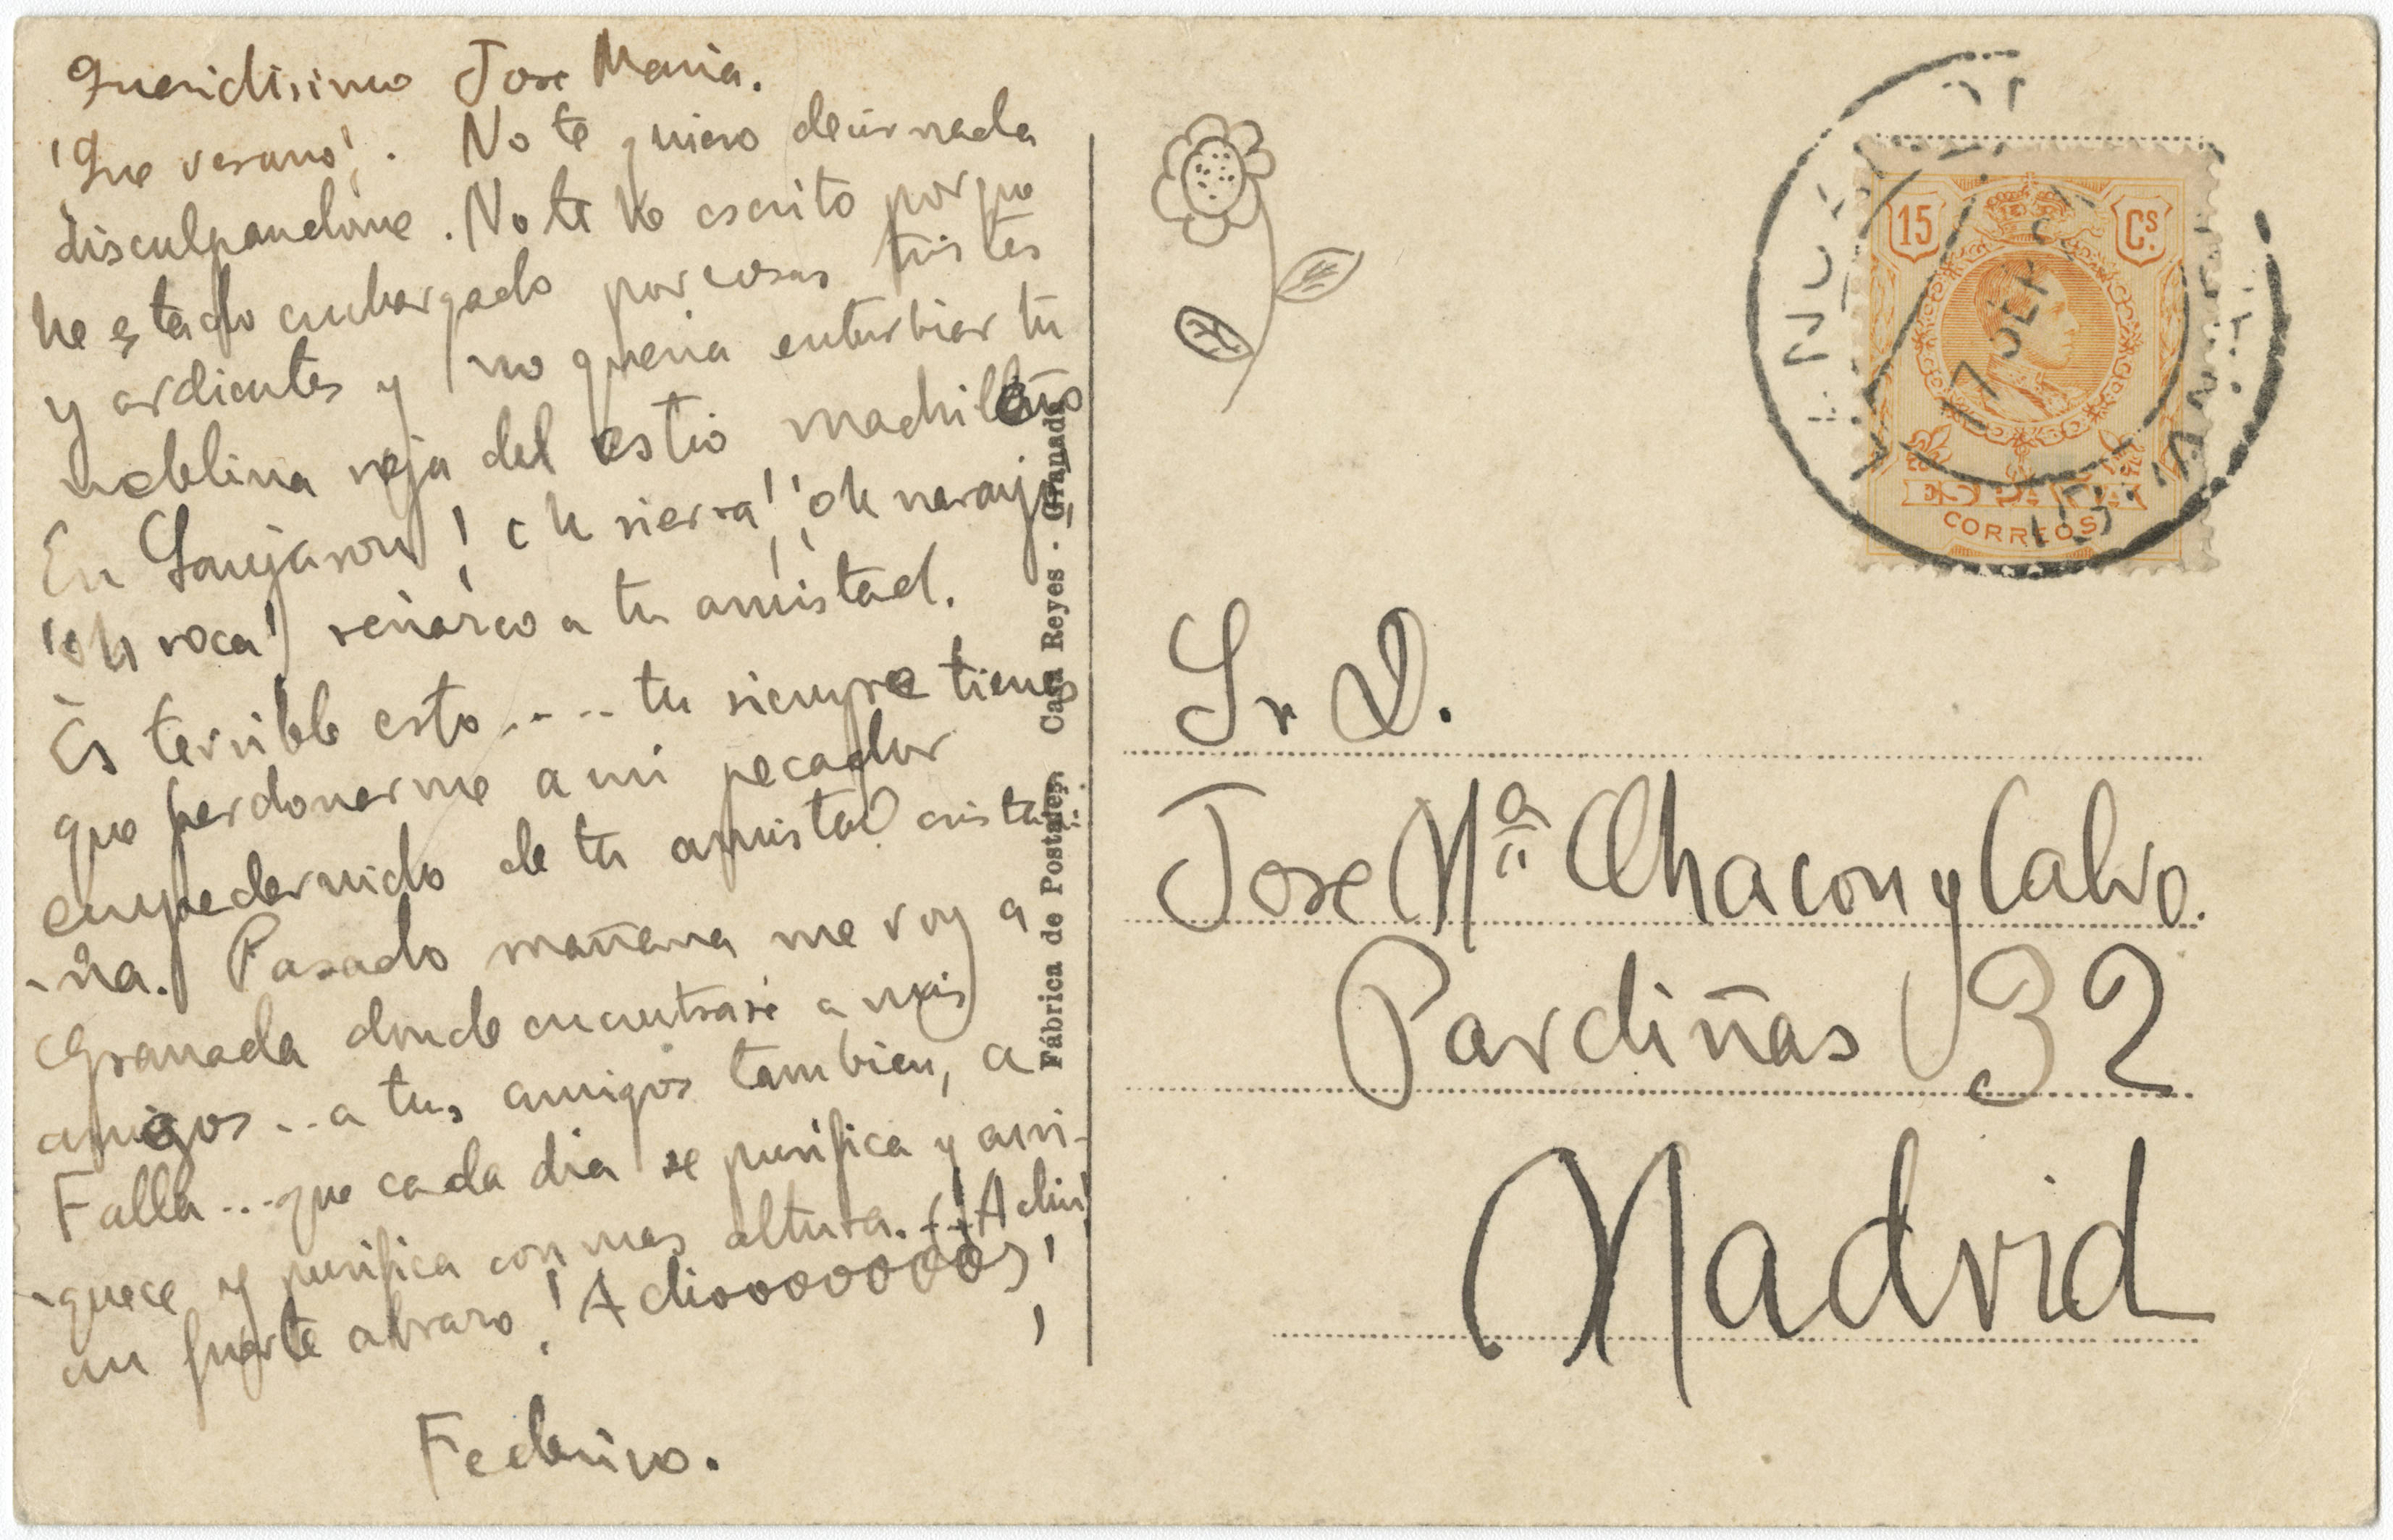 Queridisimo Jose Maria.
¡Que verano!. No te quiero decir nada
disculpandome. No te he escrito porque
he estado embargado por cosas tristes
y ardientes y no queria enturbiar tu
neblina roja del estio madrileño
En Lanjaron ¡oh sierra! ¡oh naranjo!
¡oh roca! renazco a tu amistad.
Es terrible esto .... tu siempre tienes
que perdonarme a mi pecador
empedernido de tu amistad cristali-
-na. Pasado mañana me voy a
Granada donde encontraré a mis
amigos .. a tus amigos tambien, a
Falla ... que cada dia se purifica y auri-
-quece y purifica con mas altura. ¡Adios!
un fuerte abrazo ¡Adioooooooos!
Federico.
Fábrica de Postales Casa Reyes - Granada
15 Cs.
17 SEP
ESPAÑA
CORREOS
Sr D.
Jose Mª Chacon y Calvo.
Pardiñas 32
Madrid